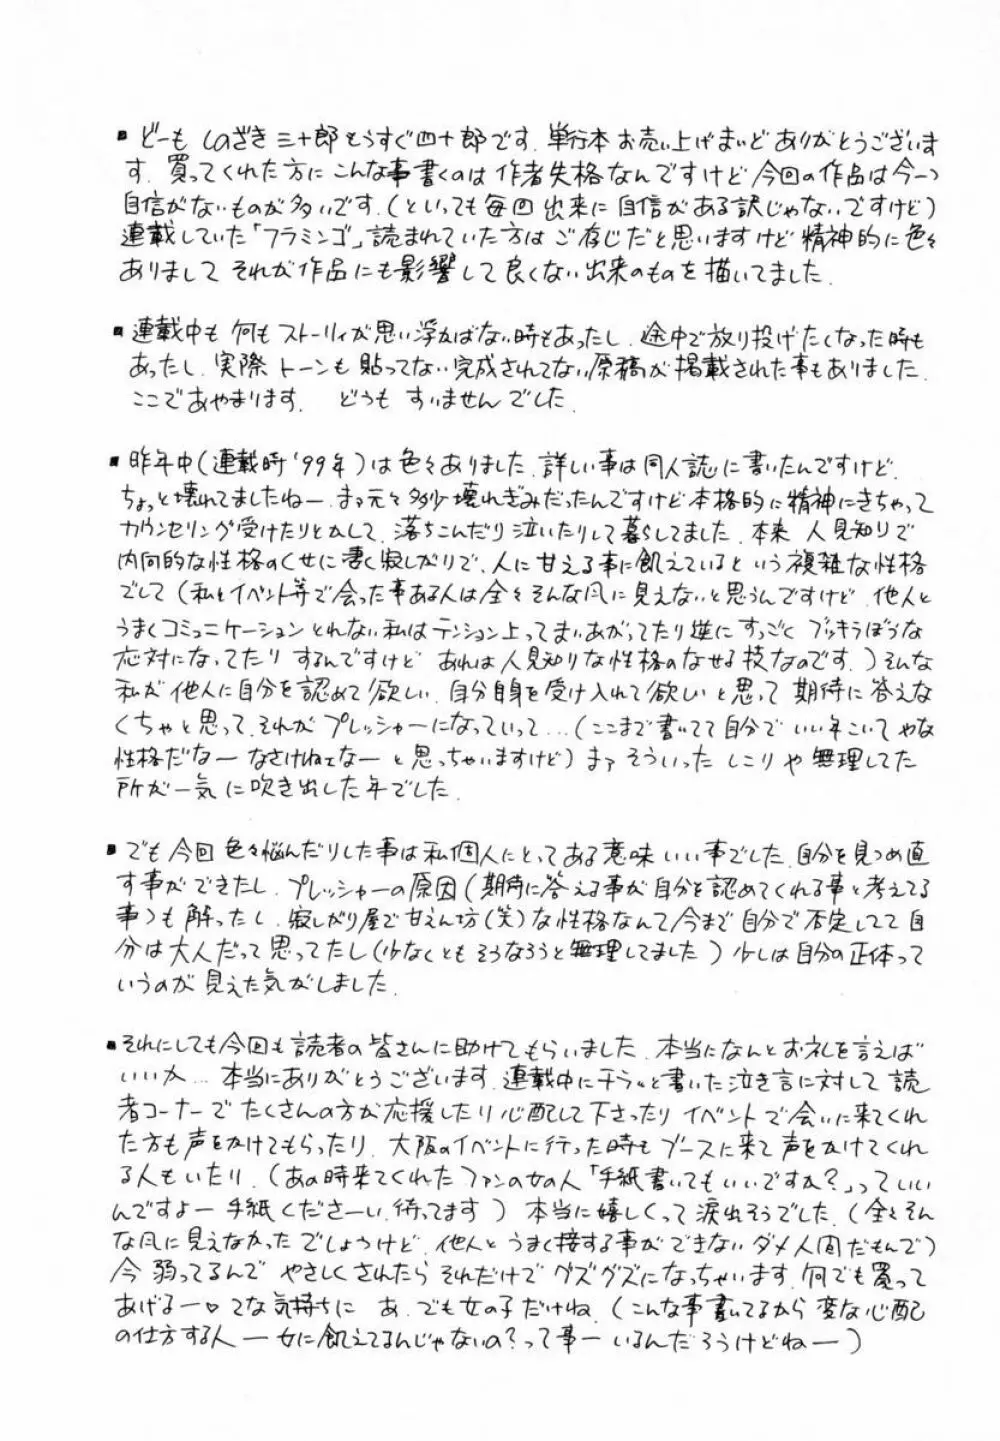 ▪どーも しのざき三十郎もうすぐ四十郎です。単行本お売い上げまいどありがとうございま
す。買ってくれた方にこんな事書くのは作者失格なんですけど今回の作品は今一つ
自信がないものが多いです。(といっても毎回出来に自信がある訳じゃないですけど)
連載していた「フラミンゴ」読まれていた方はご存じだと思いますけど精神的に色々
ありまして それが作品にも影響して良くない出来のものを描いてました。
▪連載中も何もストーリィが思い浮かばない時もあったし、途中で放り投げたくなった時も
あったし、実際トーンも貼ってない完成されてない原稿が掲載された事もありました。
ここであやまります。 どうも すいませんでした。
▪昨年中(連載時'99年)は色々ありました。詳しい事は同人誌に書いたんですけど、
ちょっと壊れてましたねー。まァ元々多少壊れぎみだったんですけど本格的に精神にきちゃって
カウンセリング受けたりとかして、落ちこんだり泣いたりして暮らしてました。本来、人見知りで
内向的な性格のくせに凄く寂しがりで、人に甘える事に飢えているという複雑な性格
でして(私とイベント等で会った事ある人は全々そんな風に見えないと思うんですけど、他人と
うまくコミュニケーションとれない私はテンション上ってまいあがってたり逆にすっごくブッキラぼうな
応対になってたりするんですけど あれは人見知りな性格のなせる技なのです。)そんな
私が他人に自分を認めて欲しい、自分自身を受け入れて欲しいと思って期待に答えな
くちゃと思って、それがプレッシャーになっていって…(ここまで書いてて自分でいい年こいてやな
性格だなー なさけねェなーと思っちゃいますけど)まァそういったしこりや無理してた
所が一気に吹き出した年でした。
▪でも今回色々悩んだりした事は私個人にとってある意味いい事でした。自分を見つめ直
す事ができたし、プレッシャーの原因(期待に答える事が自分を認めてくれる事と考えてる
事)も解ったし、寂しがり屋で甘えん坊(笑)な性格なんて今まで自分で否定してて自
分は大人だって思ってたし(少なくともそうなろうと無理してました)少しは自分の正体って
いうのが見えた気がしました。
▪それにしても今回も読者の皆さんに助けてもらいました。本当になんとお礼を言えば
いいか… 本当にありがとうございます。連載中にチラッと書いた泣き言に対して読
者コーナーでたくさんの方が応援したり心配して下さったりイベントで会いに来てくれ
た方も声をかけてもらったり、大阪のイベントに行った時もブースに来て声をかけてくれ
る人もいたり、(あの時来てくれたファンの女の人「手紙書いてもいいですか？」っていい
んですよー手紙くださーい、待ってます)本当に嬉しくって涙出そうでした。(全々そん
な風に見えなかったでしょうけど、他人とうまく接する事ができないダメ人間だもんで)
今弱ってるんで やさしくされたらそれだけでグズグズになっちゃいます。何でも買って
あげるー♡てな気持ちに あ、でも女の子だけね、(こんな事書いてるから変な心配
の仕方する人ー女に飢えてるんじゃないの？って事ーいるんだろうけどねー)